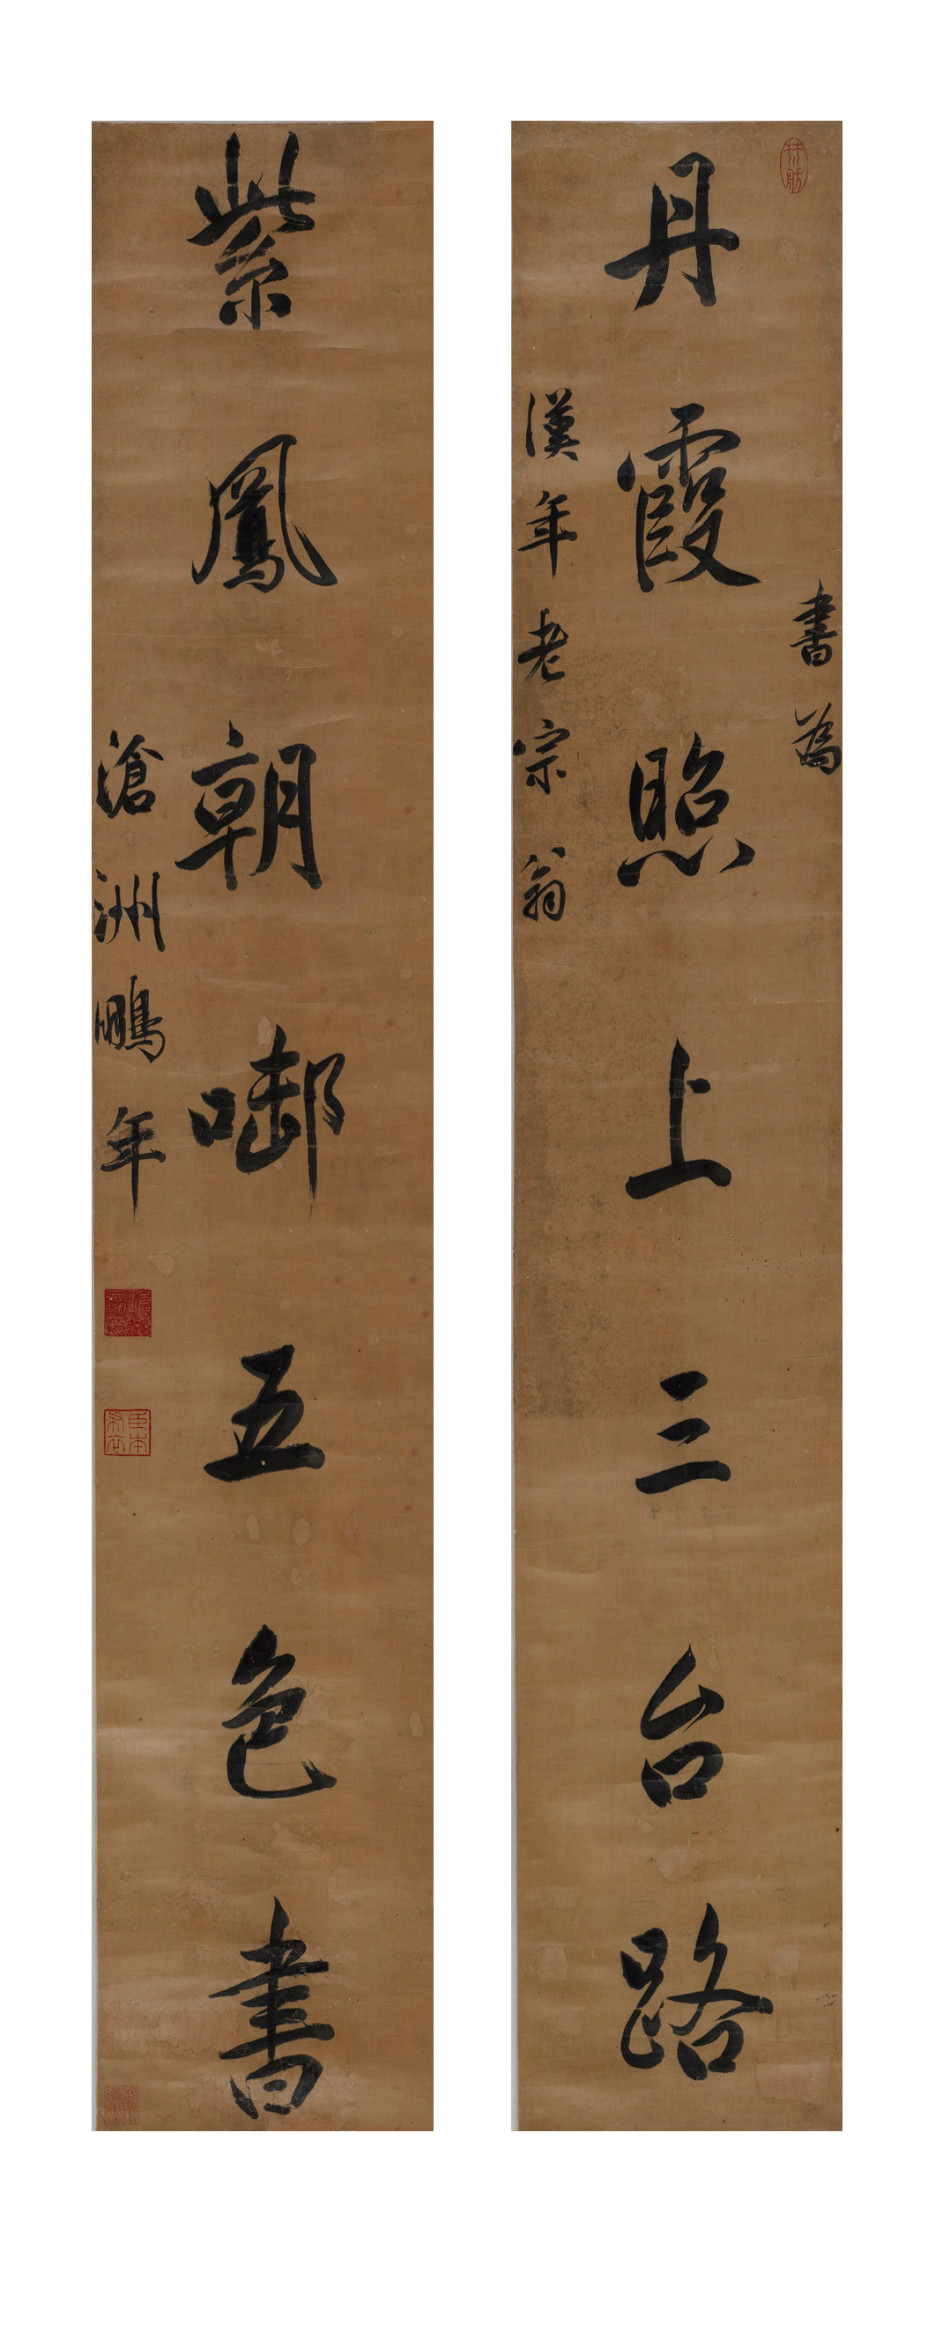 丹霞照上三台路
書為
漢年老宗翁
紫鳳朝啣五色書
滄洲鵬年
臣本布衣